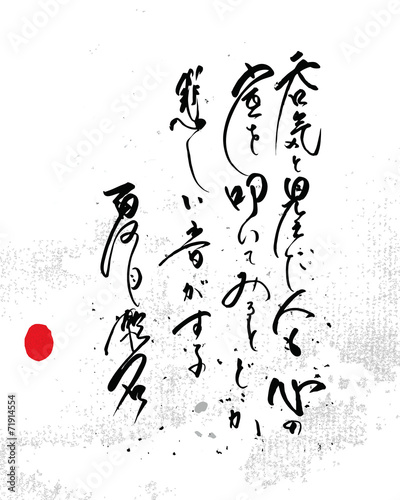 呑気と人も心の
底を叩いてみるとどこか
悲しい音がする
夏目漱石
Adobe Stock | #71914554